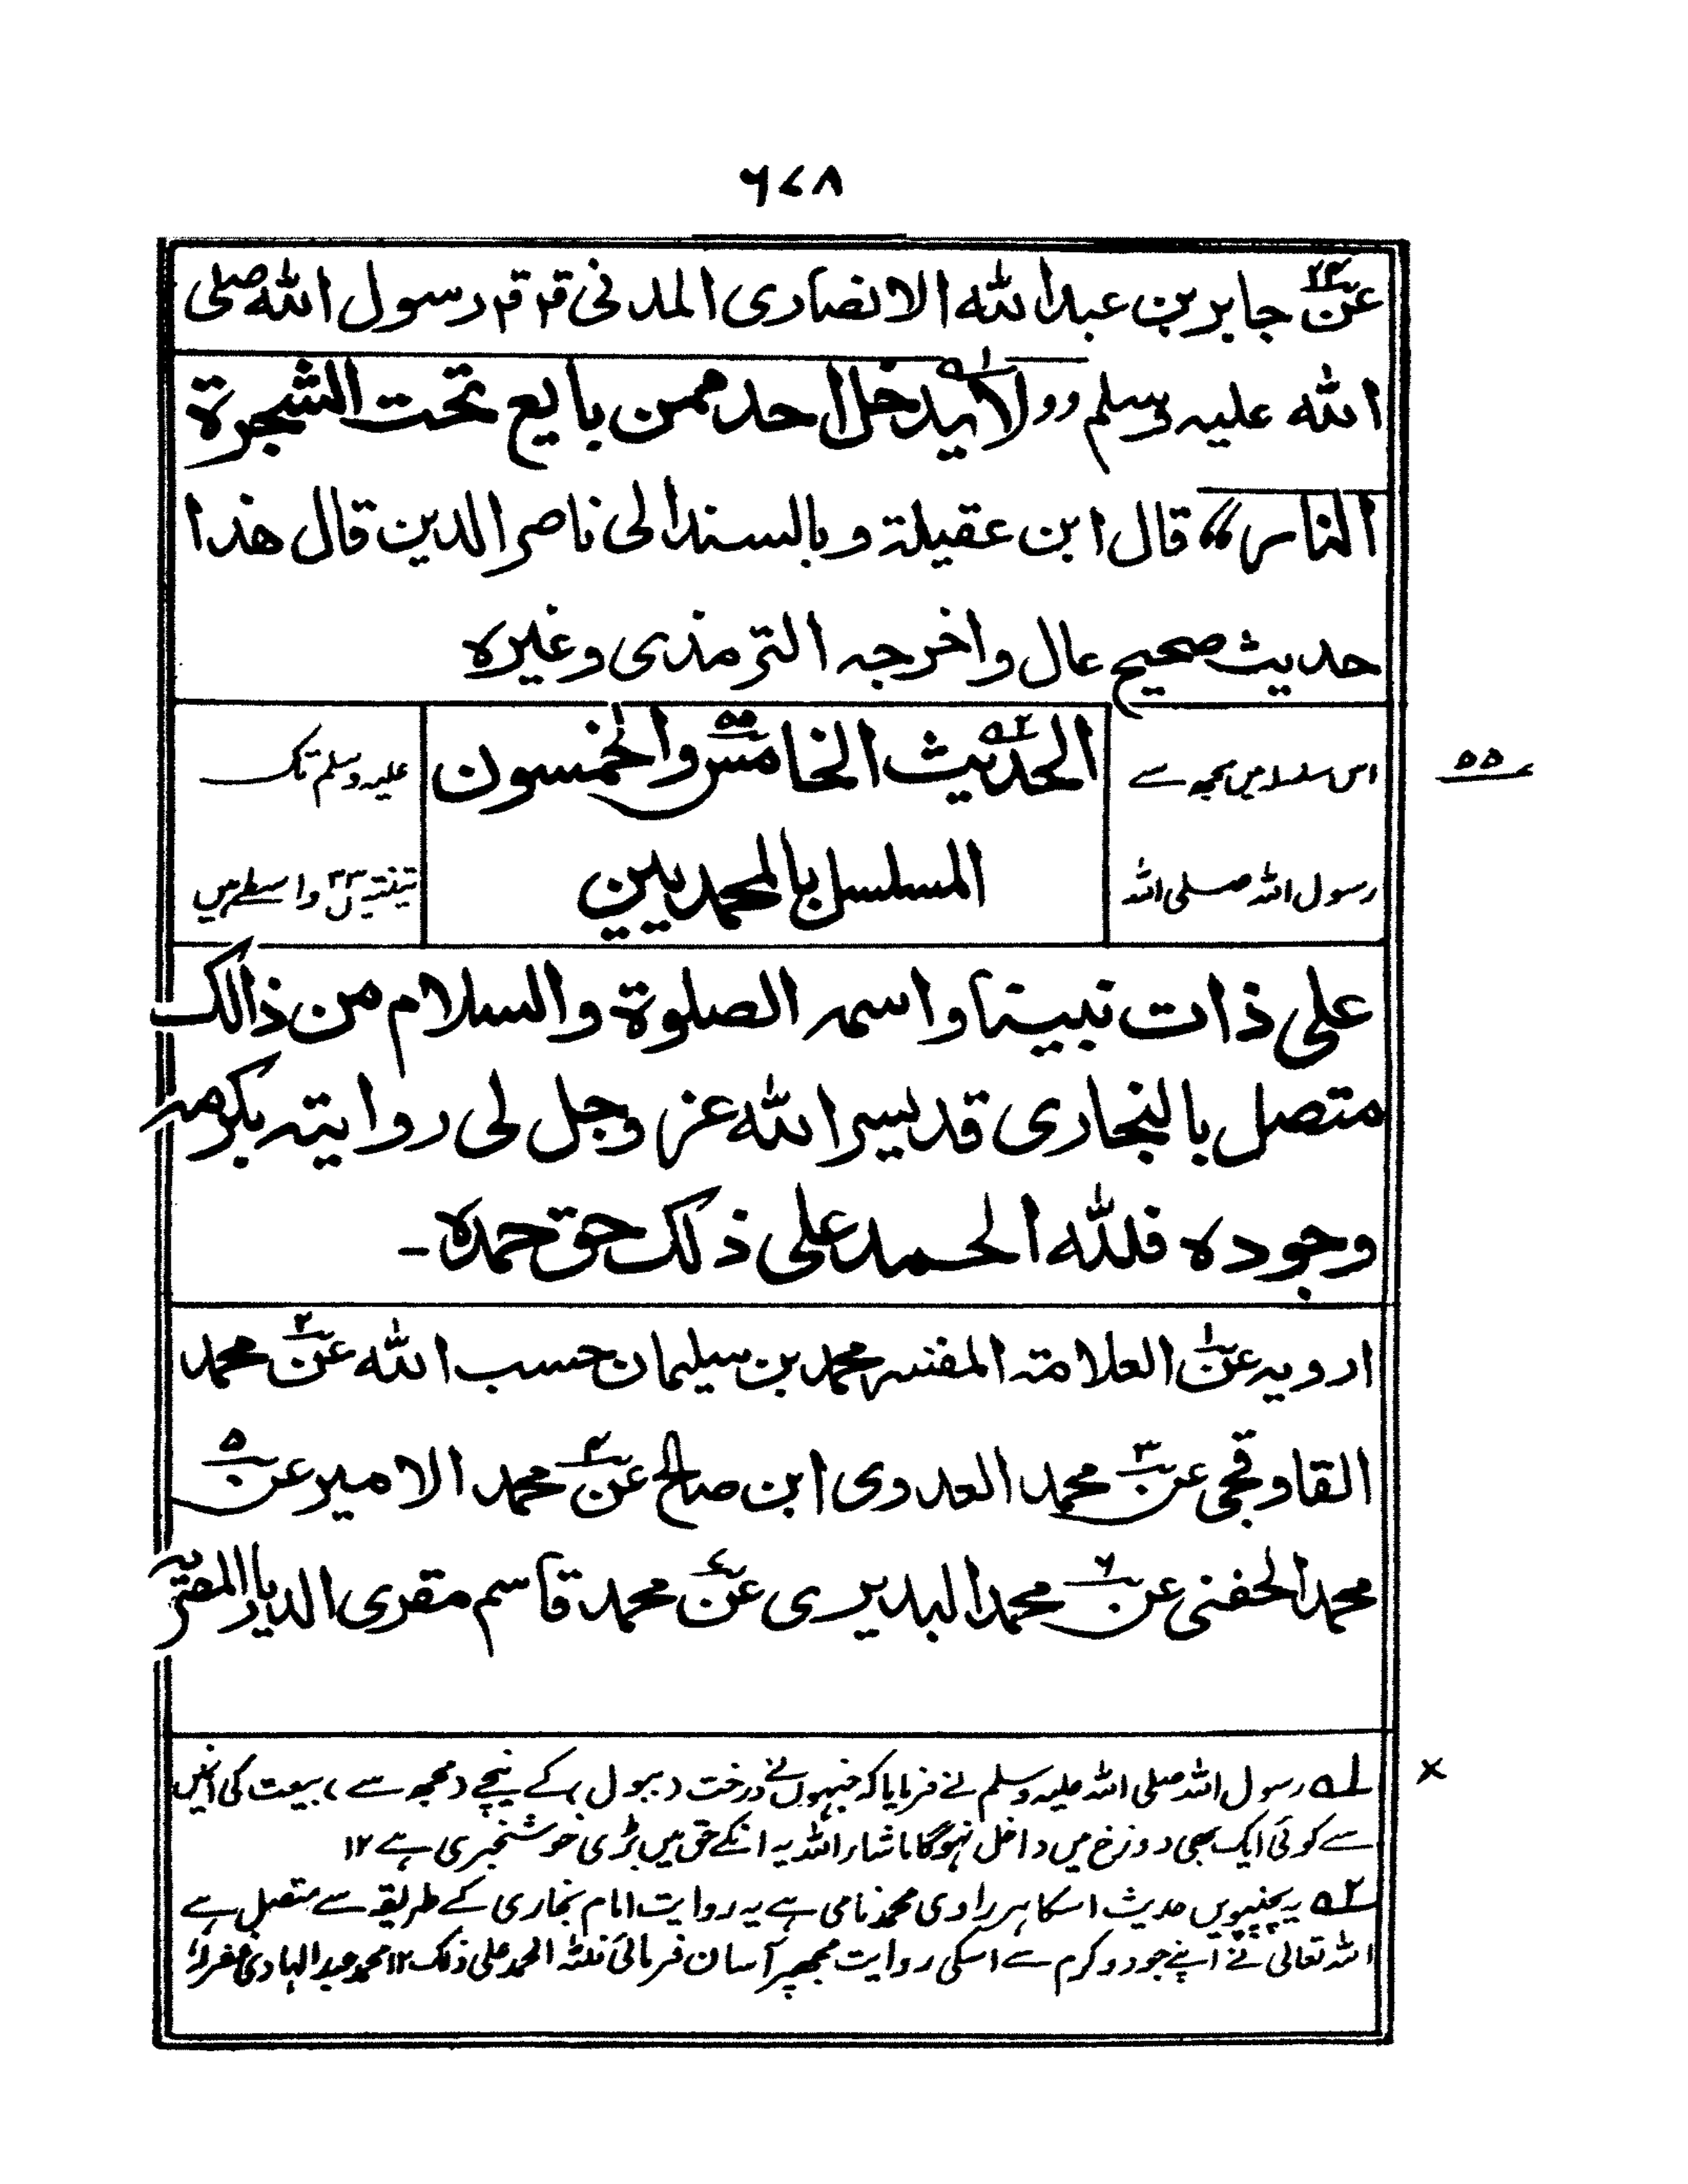 ۶۷۸
عن۲۳ جابر بن عبد الله الانصاری المدنی قال قال رسول الله صلی
الله علیہ وسلم وو لا۱ یدخل احد ممن بایع تحت الشجرة
النار،، قال ابن عقیلة وبالسند الی ناصر الدین قال هذا
حدیث صحیح عال واخرجہ الترمذی وغیره
۵۵
اس سلسلا میں مجھ سے
رسول اللہ صلی اللہ
الحدیث۲ الخامس۵۵ والخمسون
المسلسل بالمحمدیین
علیہ وسلم تک
تینتیس۳۳ واسطے ہیں
علی ذات نبینا واسمہ الصلوة والسلام من ذالک
متصل بالبخاری قد یسر الله عز وجل لی روایتہ بکرمہ
وجوده فلله الحمد علی ذلک حق حمده ـ
ارویہ عن۱ العلامة المفسر محمد بن سلیمان حسب الله عن۲ محمد
القاوقجی عن۳ محمد العدوی ابن صالح عن۴ محمد الامیر عن۵
محمد الحفنی عن۶ محمد البدیری عن۷ محمد قاسم مقری الدیار المصریہ
×
۱ رسول اللہ صلی اللہ علیہ وسلم نے فرمایا کہ جنہوں نے درخت (ببول) کے نیچے (مجھ سے) بیعت کی انمیں
سے کوئی ایک بھی دوزخ میں داخل نہوگا ماشاء اللہ یہ انکے حق میں بڑی خوشخبری ہے ۱۲
۲ یہ پچپنویں حدیث اسکا ہر راوی محمد نامی ہے یہ روایت امام بخاری کے طریقہ سے متصل ہے
اللہ تعالی نے اپنے جود وکرم سے اسکی روایت مجھپر آسان فرمائی فللہ الحمد علی ذلک ۱۲ محمد عبد الہادی غفرلہ